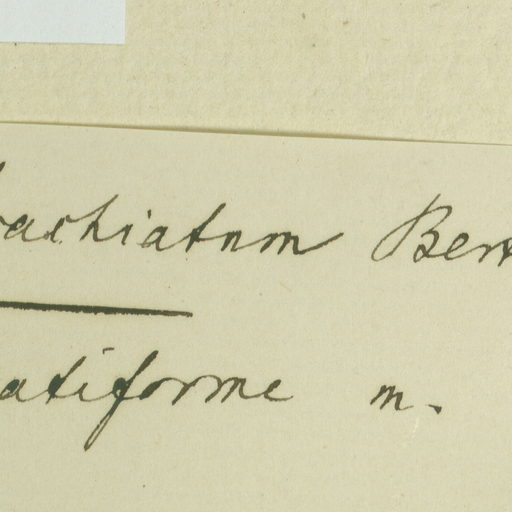 rachiatum Bert
atiforme m.